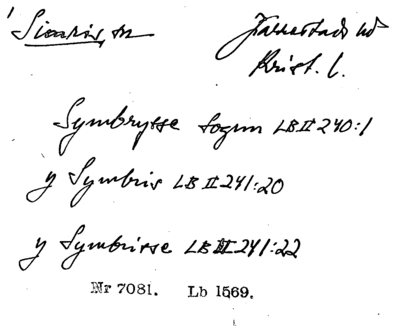 Simris, sn Järrestads hd
Krist. l.
Symbrysse sognn LB II 240:1
y Symbris LB II 241:20
y Symbrisse LB II 241:22
Nr 7081. Lb 1569.